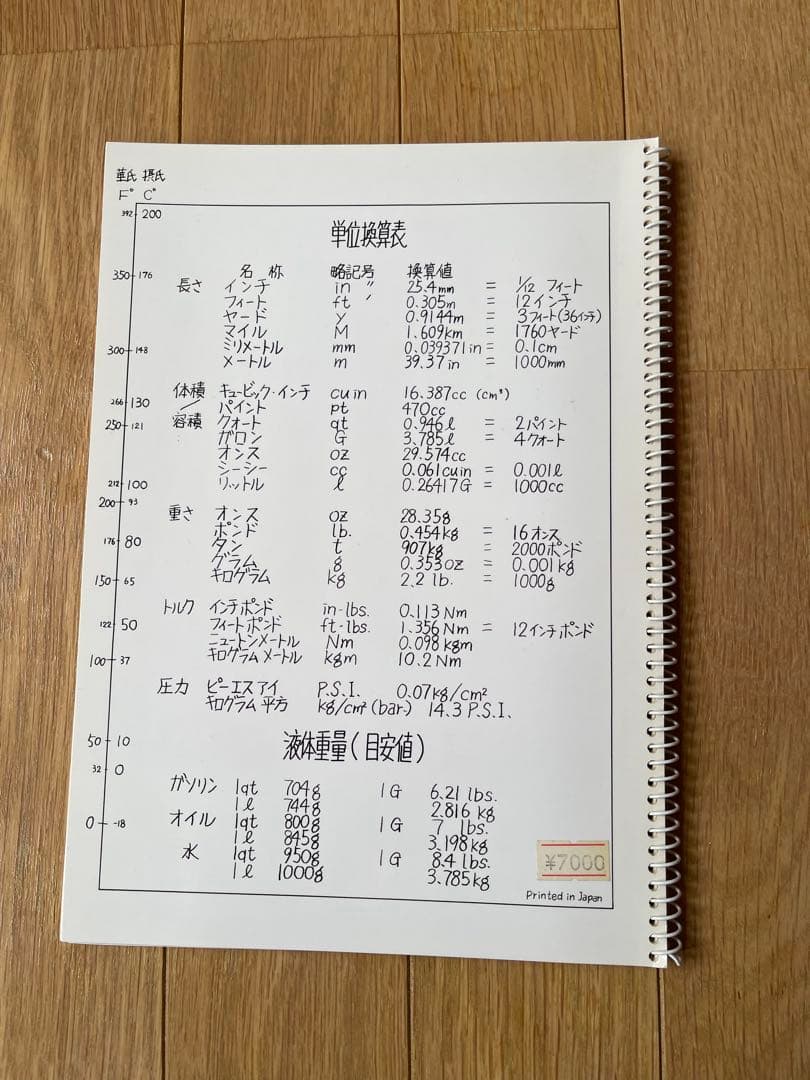 華氏 摂氏
F° C°
392 200
350 176
300 148
266 130
250 121
212 100
200 93
176 80
150 65
122 50
100 37
50 10
32 0
0 -18
単位換算表
名称 略記号 換算値
長さ インチ in 〃 25.4mm = 1/12 フィート
フィート ft ′ 0.305m = 12インチ
ヤード y 0.9144m = 3フィート(36インチ)
マイル M 1.609km = 1760ヤード
ミリメートル mm 0.039371in = 0.1cm
メートル m 39.37in = 1000mm
体積 キュービック・インチ cu in 16.387cc (cm³)
／ パイント pt 470cc
容積 クォート qt 0.946ℓ = 2パイント
ガロン G 3.785ℓ = 4クォート
オンス oz 29.574cc
シーシー cc 0.061cuin = 0.001ℓ
リットル ℓ 0.26417G = 1000cc
重さ オンス oz 28.35g
ポンド lb. 0.454kg = 16オンス
タン t 907kg = 2000ポンド
グラム g 0.353oz = 0.001kg
キログラム kg 2.2 lb. = 1000g
トルク インチポンド in-lbs. 0.113 Nm
フィートポンド ft-lbs. 1.356 Nm = 12インチポンド
ニュートンメートル Nm 0.098 kgm
キログラムメートル kgm 10.2 Nm
圧力 ピーエスアイ P.S.I. 0.07kg/cm²
キログラム平方 kg/cm²(bar.) 14.3 P.S.I.
液体重量(目安値)
ガソリン 1qt 704g 1G 6.21 lbs.
1ℓ 744g 2.816 kg
オイル 1qt 800g 1G 7 lbs.
1ℓ 845g 3.198kg
水 1qt 950g 1G 8.4 lbs.
1ℓ 1000g 3.785kg
¥7000
Printed in Japan